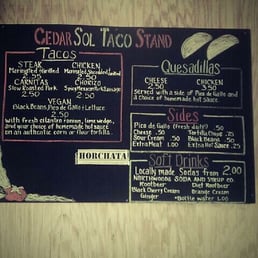 CEDAR SOL TACO STAND
Tacos
STEAK CHICKEN
Marinated & Grilled Marinated, Shredded
2.50 2.50
CARNITAS CHORIZO
Slow Roasted Pork Spicy Mexican Sausage
2.50 2.50
VEGAN
Black Beans, Pico de Gallo & Lettuce
2.50
with fresh cilantro, onion, lime wedge,
and your choice of homemade hot sauce
on an authentic corn or flour tortilla.
HORCHATA
Quesadillas
CHEESE CHICKEN
2.50 3.50
Served with a side of Pico de Gallo and
a choice of homemade hot sauce.
Sides
Pico de Gallo (fresh daily) .50
Cheese .50 Tortilla Chips .50
Sour Cream .50 Black Beans .50
Extra Meat 1.00 Extra Hot Sauce .25
Soft Drinks
Locally made Sodas from 2.00
NORTHWOODS SODA AND SYRUP CO.
Rootbeer Diet Rootbeer
Black Cherry Cream Orange Cream
Ginger Bottle water 1.00